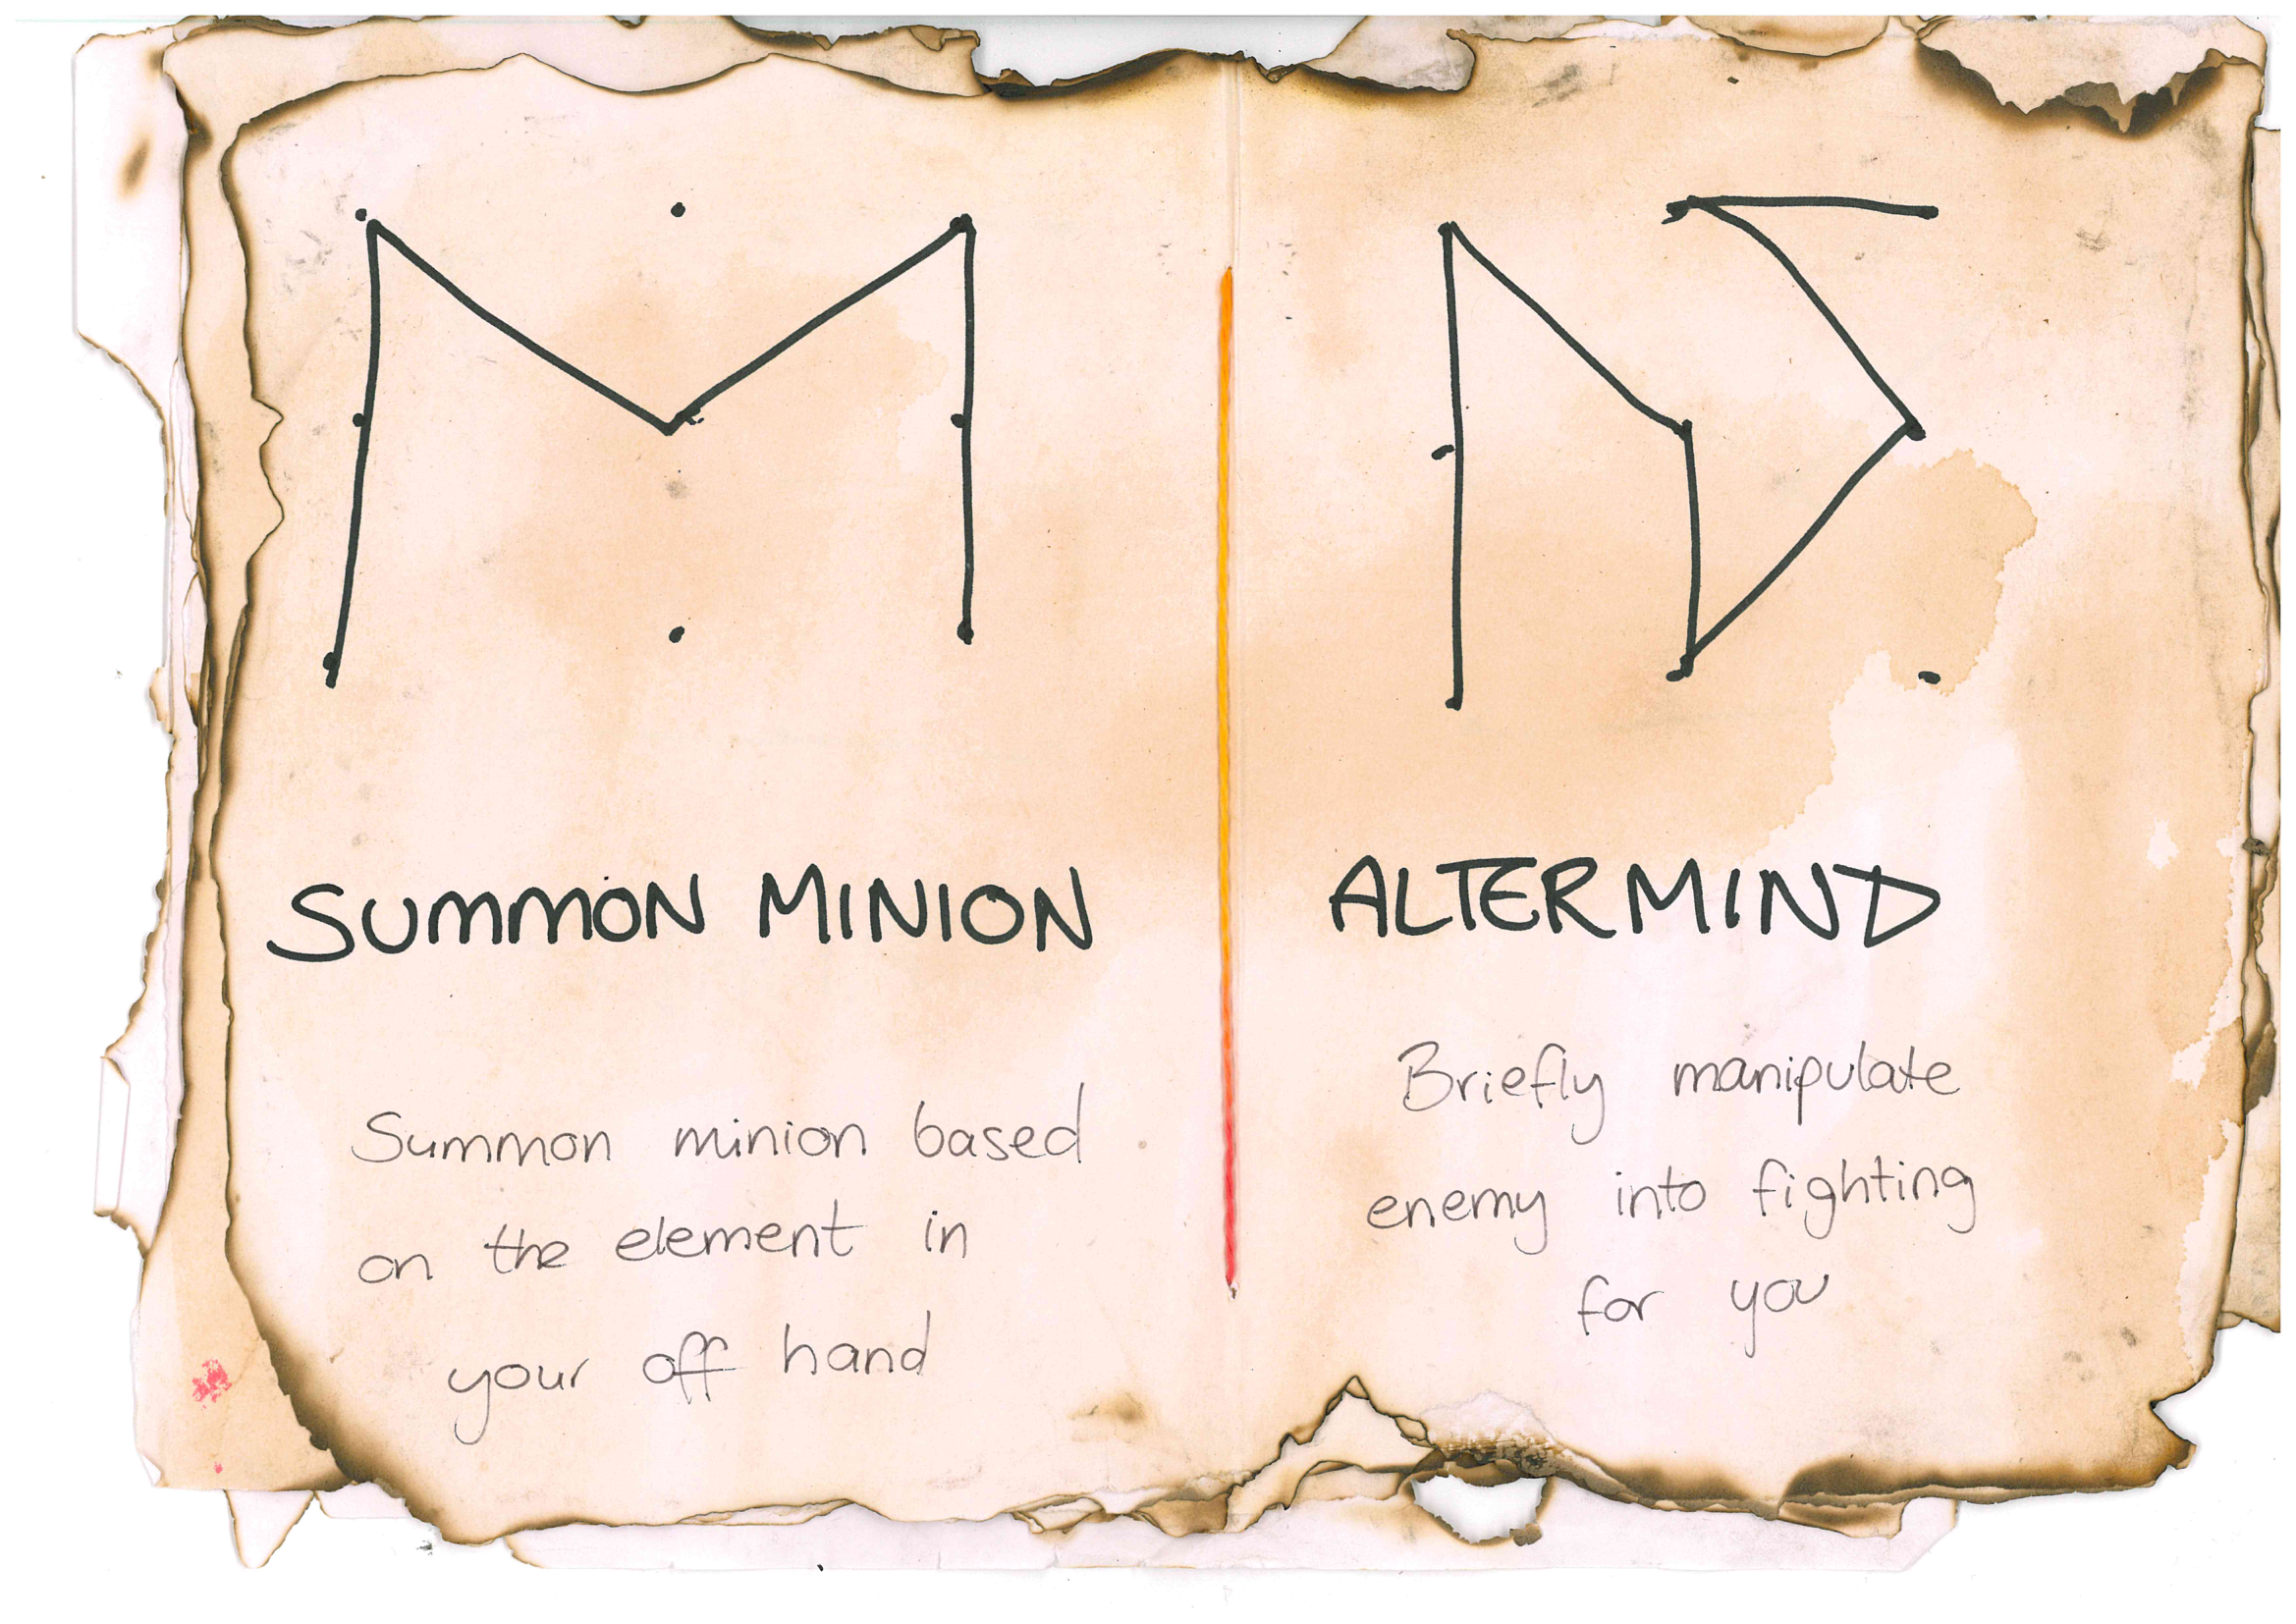 SUMMON MINION
Summon minion based
on the element in
your off hand
ALTERMIND
Briefly manipulate
enemy into fighting
for you